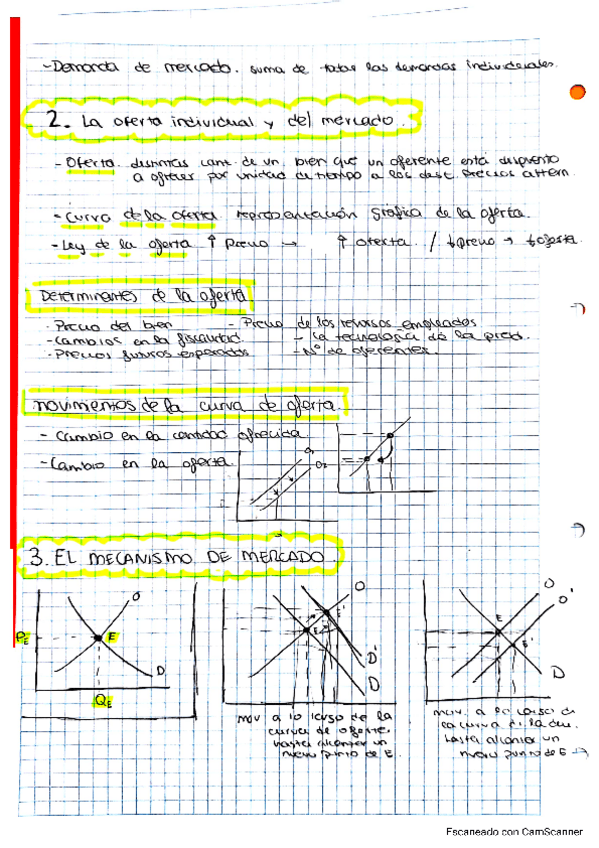 - Demanda de mercado. suma de todas las demandas individuales.
2. La oferta individual y del mercado.
- Oferta. distintas cant. de un bien que un oferente está dispuesto
a ofrecer por unidad de tiempo a los dist. precios altern.
- Curva de la oferta representación gráfica de la oferta.
- Ley de la oferta ↑ precio → ↑ oferta / ↓ precio → ↓ oferta.
Determinantes de la oferta
· Precio del bien - Precio de los recursos empleados
· cambios en la fiscalidad. - La tecnología de la prod.
· Precios futuros esperados - Nº de oferentes.
movimientos de la curva de oferta.
- Cambio en la cantidad ofrecida
- Cambio en la oferta
O₁
O₂
3. EL MECANISMO DE MERCADO.
O
PE
E
D
QE
O
E'
E
D'
D
O
O'
E
E'
D
mov a lo largo de la
curva de oferta,
hasta alcanzar un
nuevo punto de E.
mov. a lo largo de
la curva de la de.
hasta alcanzar un
nuevo punto de E
Escaneado con CamScanner